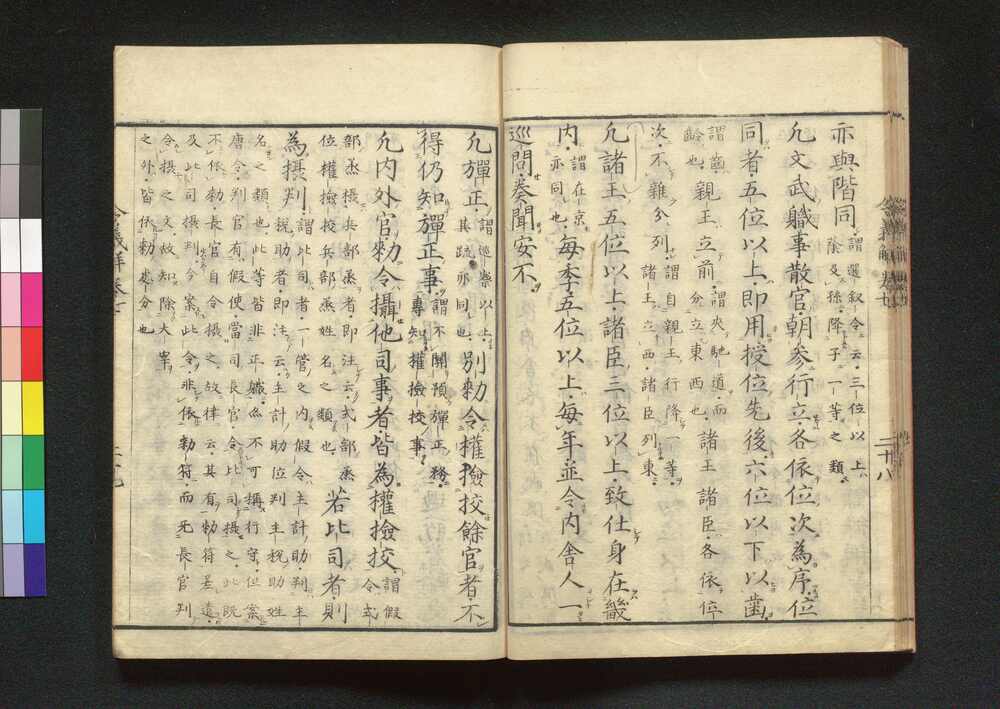 亦與階同謂選叙令云三位以上
蔭及孫降子一等之類
凡文武職事散官朝参行立各依位次為序位
同者五位以上即用授位先後六位以下以歯
謂歯
齡也親王立前謂夾馳道而
分立東西也諸王諸臣各依位
次不雜分列謂自親王行降一等
諸王立西諸臣列東
凡諸王五位以上諸臣三位以上致仕身在畿
内謂在京
亦同也毎季五位以上毎年並令内舎人一
巡問奏聞安不
凡弾正謂巡察以上
其疏亦同也別勅令權撿挍餘官者不
得仍知弾正事謂不關預弾正務
專知權撿挍事
凡内外官勅令攝他司事者皆為權撿挍謂假
令式
部丞攝兵部丞者即注云式部丞
位權撿挍兵部丞姓名之類也若比司者則
為攝判謂比司者一管之内假令主計助判主
税助者即注云主計助位判主税助姓
名之類也此等皆非正職故不可稱行守位案
唐令判官有假使當司長官令比司攝之此既
不依勅長官自令攝之故律云其有勅符差遣
及比司攝判今案此令非依勅符而无長官判
令攝之文故知除大宰
之外皆依勅處分也